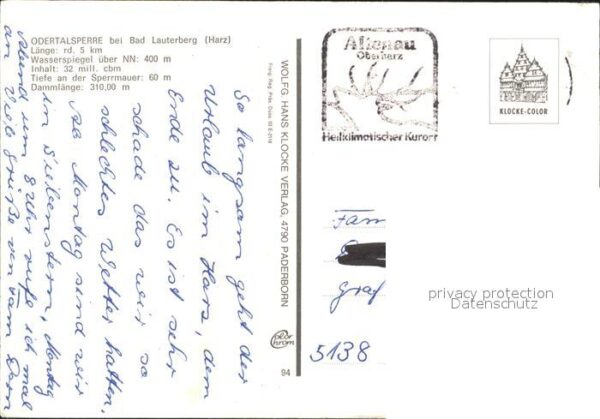 ODERTALSPERRE bei Bad Lauterberg (Harz)
Länge: rd. 5 km
Wasserspiegel über NN: 400 m
Inhalt: 32 mill. cbm
Tiefe an der Sperrmauer: 60 m
Dammlänge: 310,00 m
So langsam geht der
Urlaub im Harz, dem
Ende zu. Es ist sehr
schade das wir so
schlechtes Wetter hatten.
Ab Montag sind wir
in Montag
Abend um 8 Uhr rufe ich mal
an Viele Grüße von Fam
WOLFG. HANS KLOCKE VERLAG, 4790 PADERBORN
94
Altenau
Oberharz
Heilklimatischer Kurort
KLOCKE-COLOR
Fam
Graf
5138
privacy protection
Datenschutz